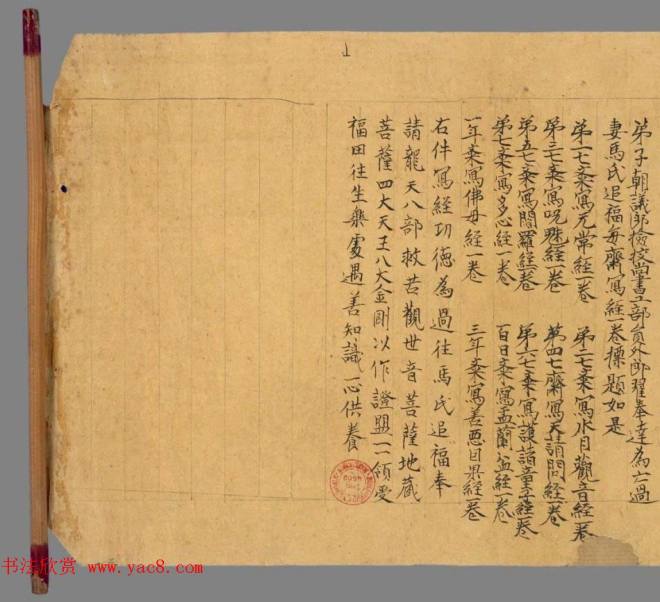 弟子朝議郎檢校尚書工部員外郎翟奉達為亡過
妻馬氏追福每齋寫經一卷標題如是
第一七齋寫无常經一卷 第二七齋寫水月觀音經一卷
第三七齋寫呪魅經一卷 第四七齋寫天請問經一卷
第五七齋寫閻羅經一卷 第六七齋寫護諸童子經一卷
第七齋寫多心經一卷 百日齋寫盂蘭盆經一卷
一年齋寫佛母經一卷 三年齋寫善惡因果經一卷
右件寫經功德為過往馬氏追福奉
請龍天八部救苦觀世音菩薩地藏
菩薩四大天王八大金剛以作證盟一一領受
福田往生樂處遇善知識一心供養
书法欣赏 www.yac8.com